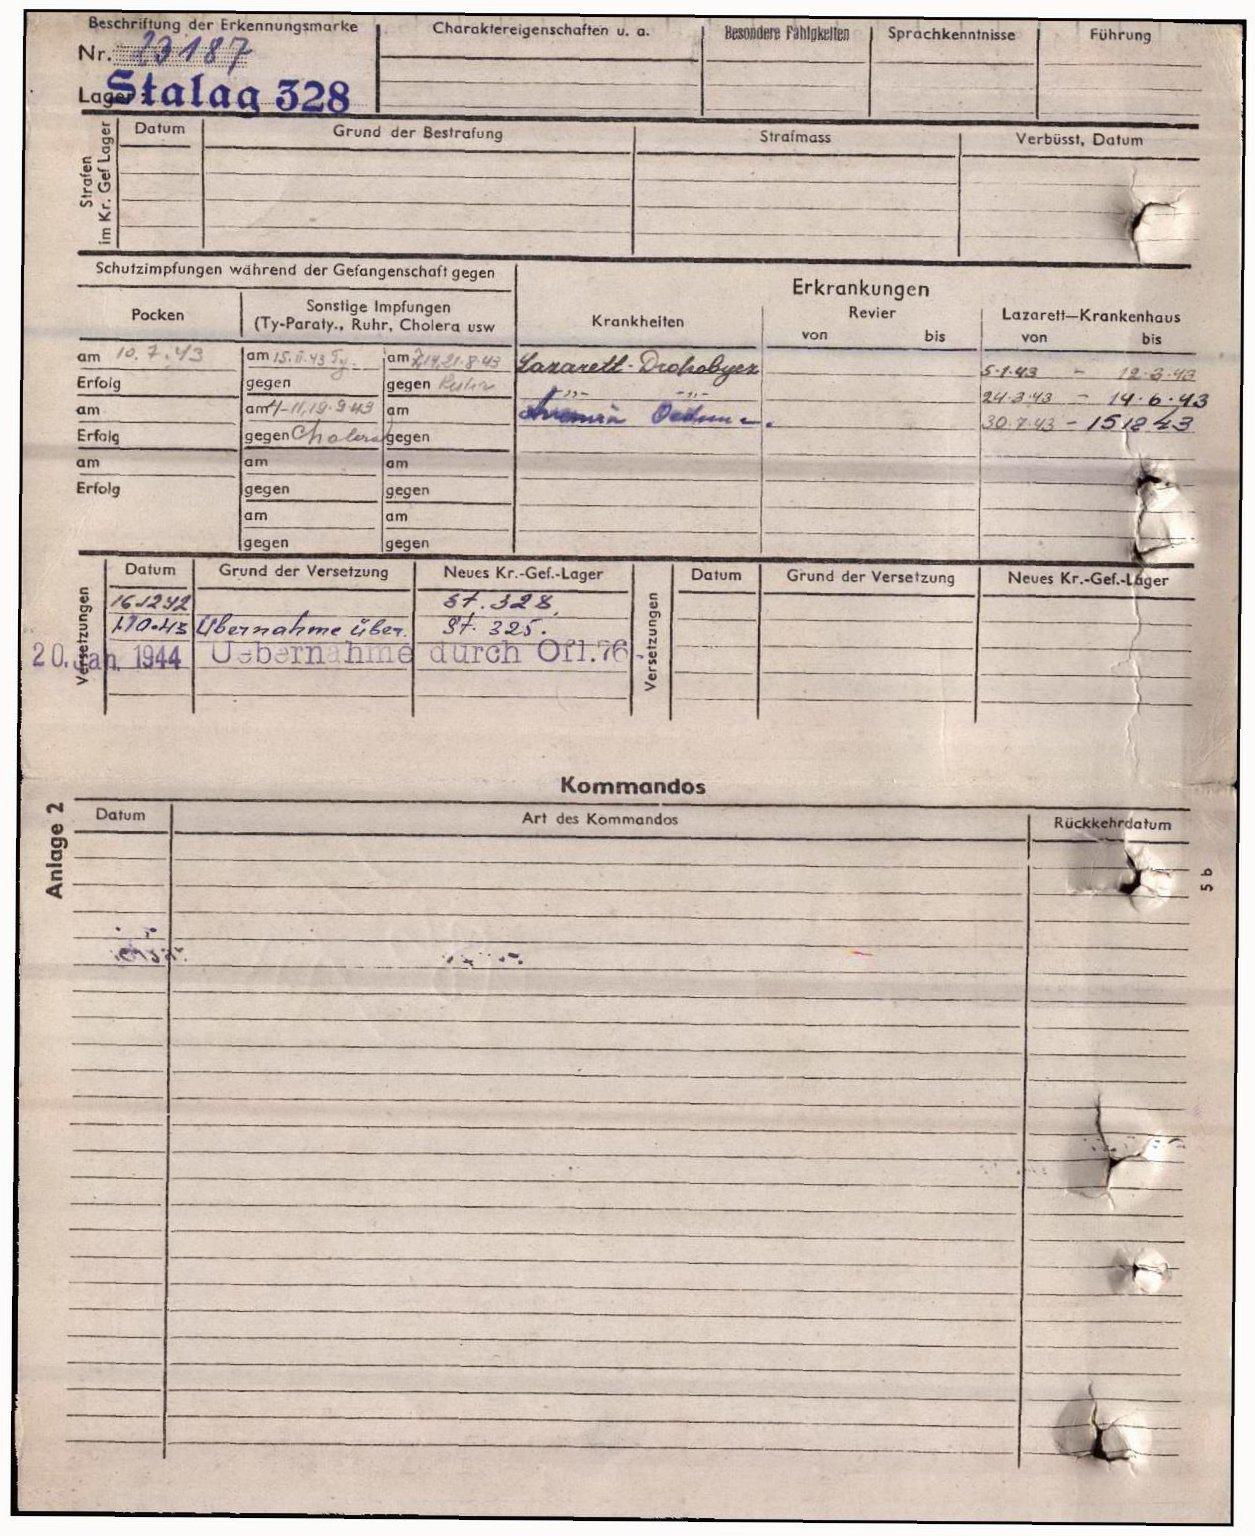 Beschriftung der Erkennungsmarke
Nr. 23187
Lager: Stalag 328
Charaktereigenschaften u. a.
Besondere Fähigkeiten
Sprachkenntnisse
Führung
Strafen
im Kr. Gef Lager
Datum
Grund der Bestrafung
Strafmass
Verbüsst, Datum
Schutzimpfungen während der Gefangenschaft gegen
Pocken
Sonstige Impfungen
(Ty-Paraty., Ruhr, Cholera usw
am 10.7.43
Erfolg
am
Erfolg
am
Erfolg
am 15.II.43 Ty.
gegen
am 4-11,19.9.43
gegen Cholera
am
gegen
am
gegen
am 7,14,21.8.43
gegen Ruhr
am
gegen
am
gegen
am
gegen
Erkrankungen
Krankheiten
Revier
von bis
Lazarett—Krankenhaus
von bis
Lazarett-Drohobycz 5.1.43 - 12.3.43
-"- -"- 24.3.43 - 14.6.43
30.7.43 - 15 12 43
Versetzungen
Datum
Grund der Versetzung
Neues Kr.-Gef.-Lager
16.12.42 St. 328.
1.10.43 Übernahme über. St. 325.
20. Jan. 1944 Uebernahme durch Ofl. 76
Versetzungen
Datum
Grund der Versetzung
Neues Kr.-Gef.-Lager
Kommandos
Anlage 2
Datum
Art des Kommandos
Rückkehrdatum
5b